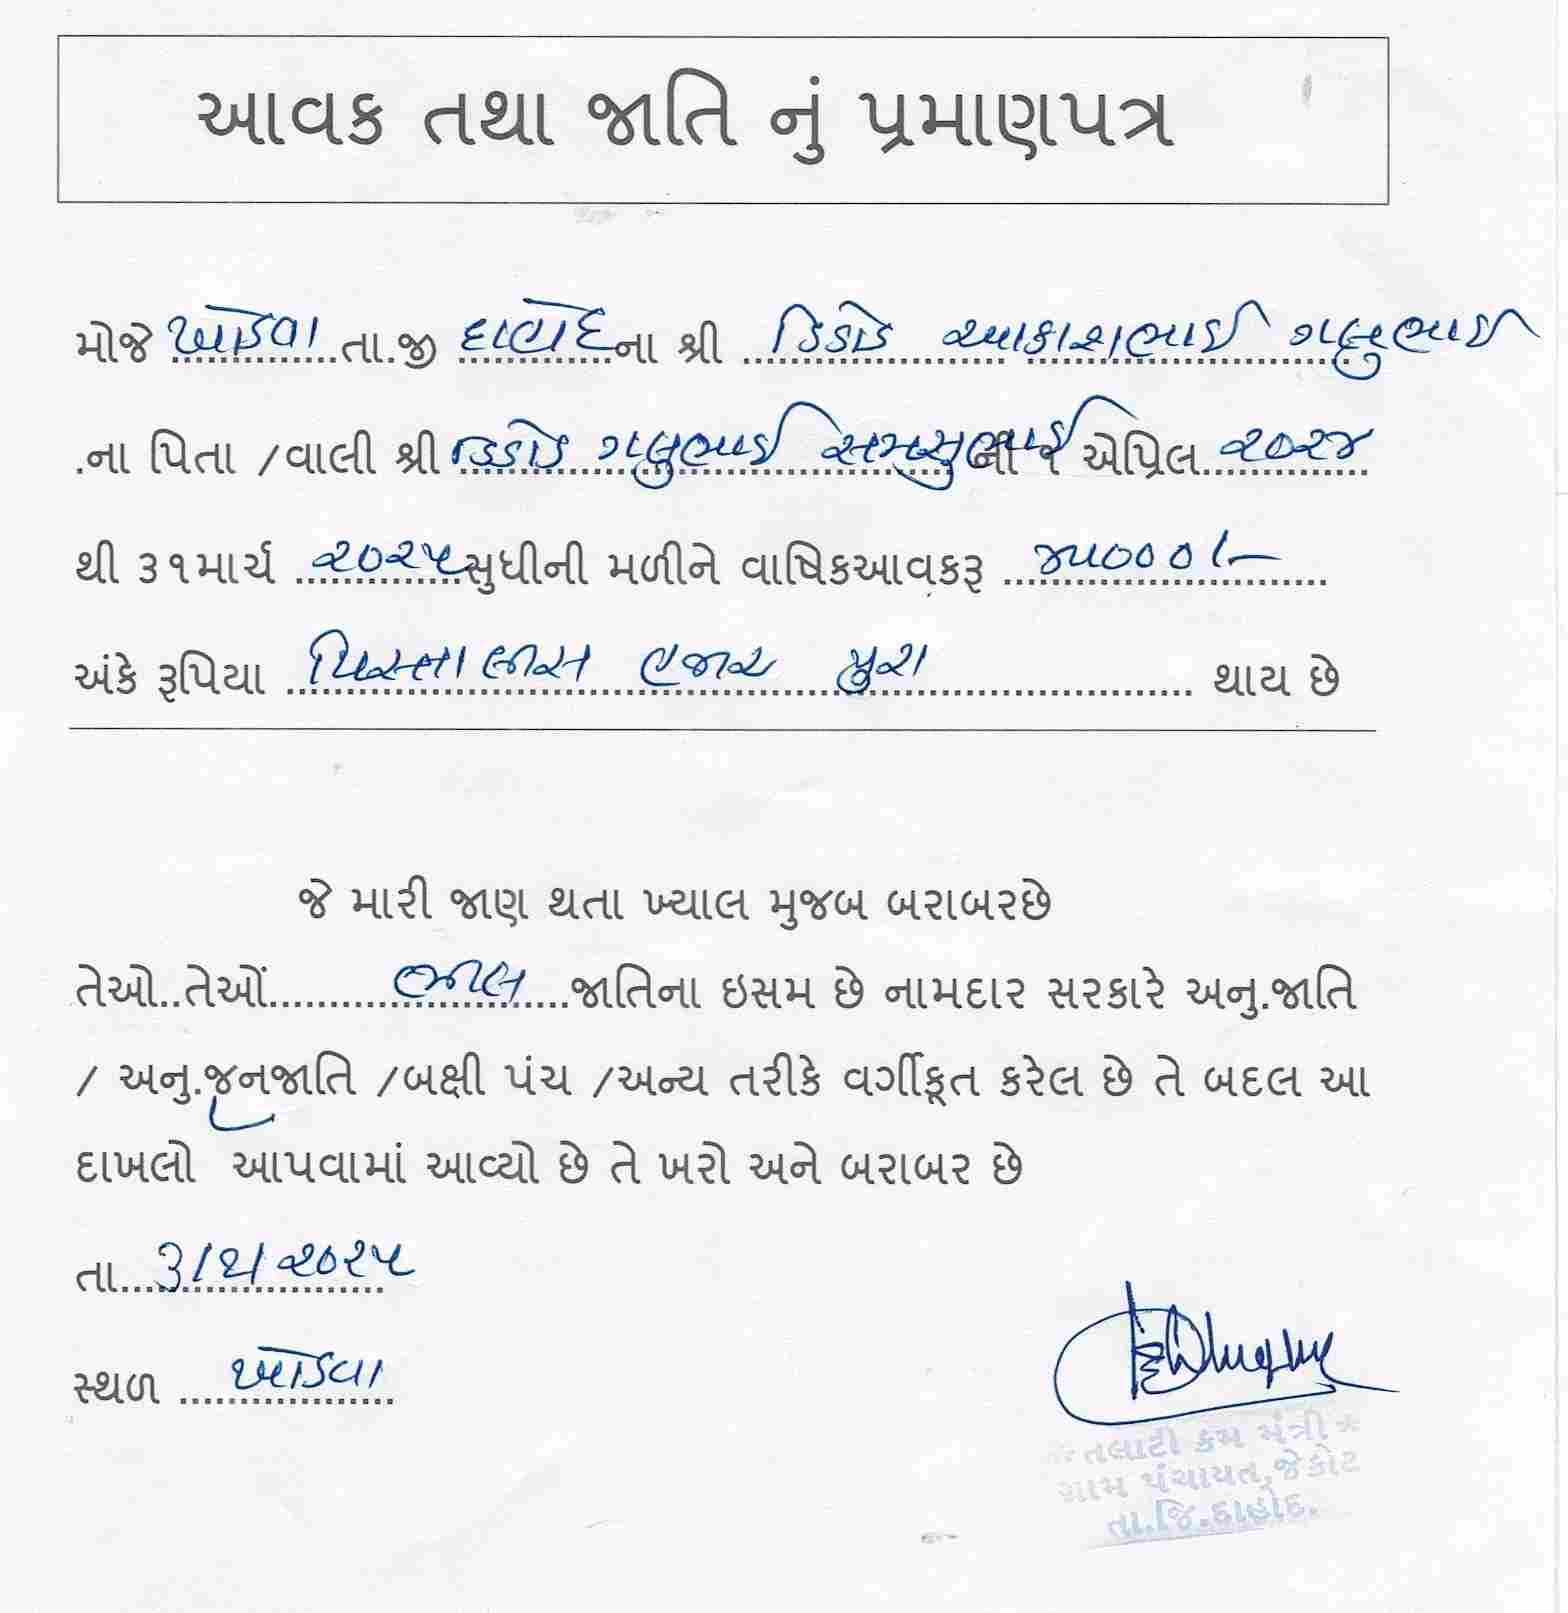 આવક તથા જાતિ નું પ્રમાણપત્ર
મોજે ખોડવા તા.જી દાહોદ ના શ્રી ડિંડોડ આકાશભાઈ ગબુભાઈ
.ના પિતા /વાલી શ્રી ડિંડોડ ગબુભાઈ સમસુભાઈ ની ૧ એપ્રિલ ૨૦૨૪
થી ૩૧માર્ચ ૨૦૨૫ સુધીની મળીને વાષિકઆવકરૂ ૪૫૦૦૦/-
અંકે રૂપિયા પિસ્તાલીસ હજાર પુરા થાય છે
જે મારી જાણ થતા ખ્યાલ મુજબ બરાબરછે
તેઓ..તેઓં ભીલ જાતિના ઇસમ છે નામદાર સરકારે અનુ.જાતિ
/ અનુ.જનજાતિ /બક્ષી પંચ /અન્ય તરીકે વર્ગીકૂત કરેલ છે તે બદલ આ
દાખલો આપવામાં આવ્યો છે તે ખરો અને બરાબર છે
તા... ૨૦૨૫
સ્થળ ખોડવા
તલાટી કમ મંત્રી
ગ્રામ પંચાયત,જેકોટ
તા.જિ.દાહોદ.